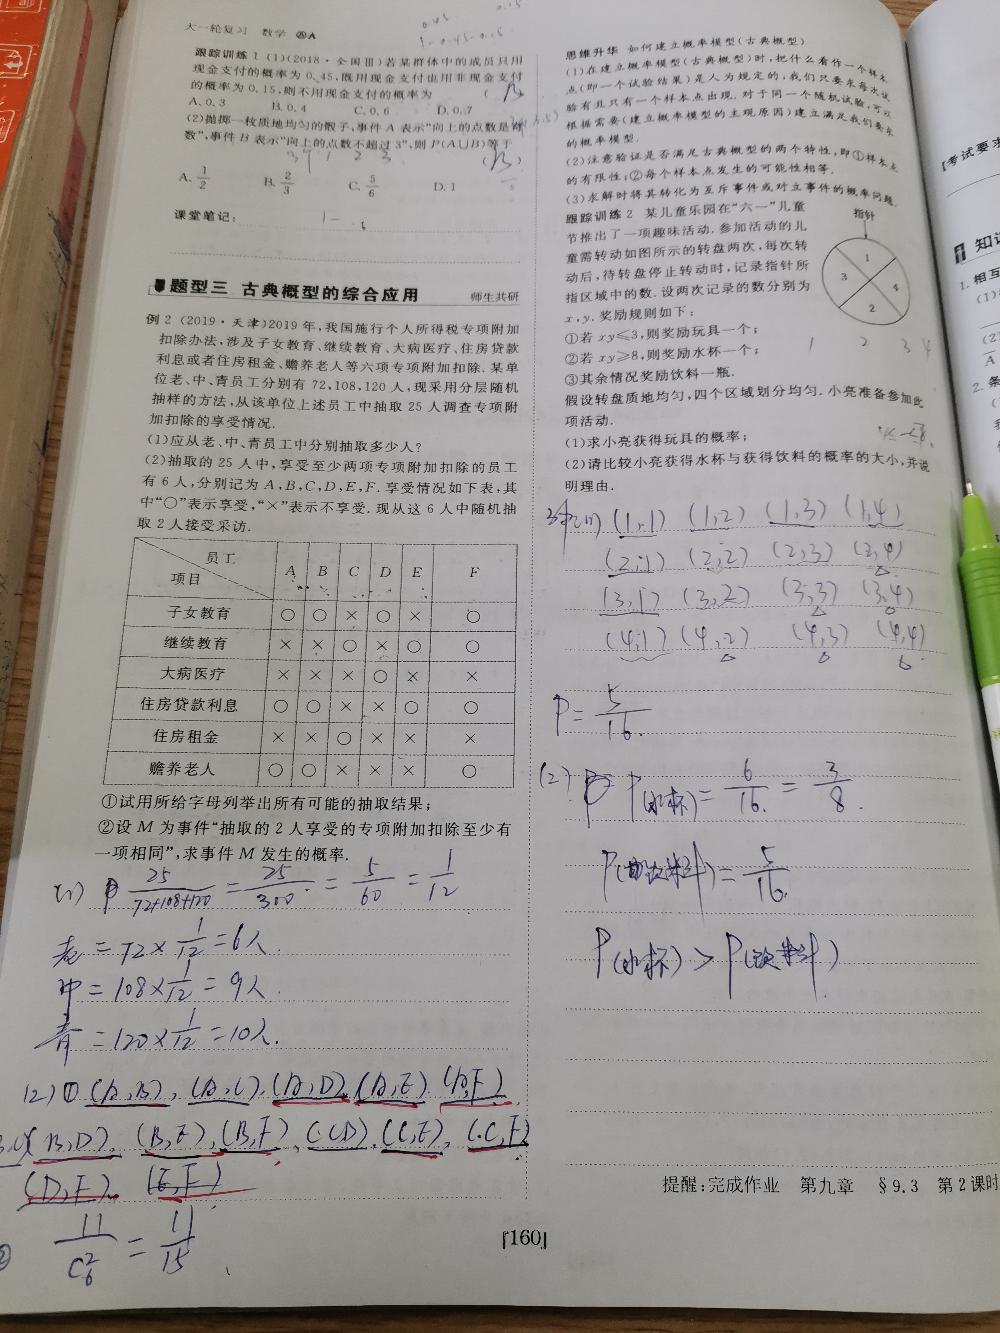 大一轮复习 数学 ⓇA
0.45
0.15
1-0.45-0.15
跟踪训练1 (1)(2018·全国Ⅲ)若某群体中的成员只用
现金支付的概率为0.45,既用现金支付也用非现金支付
的概率为0.15,则不用现金支付的概率为 ( B
A.0.3 B.0.4 C.0.6 D.0.7
(2)抛掷一枚质地均匀的骰子,事件A表示“向上的点数是奇
数”,事件B表示“向上的点数不超过3”,则P(A∪B)等于
( B )
A.1/2 B.2/3 C.5/6 D.1
课堂笔记:
题型三 古典概型的综合应用 师生共研
例2 (2019·天津)2019年,我国施行个人所得税专项附加
扣除办法,涉及子女教育、继续教育、大病医疗、住房贷款
利息或者住房租金、赡养老人等六项专项附加扣除.某单
位老、中、青员工分别有72,108,120人,现采用分层随机
抽样的方法,从该单位上述员工中抽取25人调查专项附
加扣除的享受情况.
(1)应从老、中、青员工中分别抽取多少人?
(2)抽取的25人中,享受至少两项专项附加扣除的员工
有6人,分别记为A,B,C,D,E,F.享受情况如下表,其
中“○”表示享受,“×”表示不享受.现从这6人中随机抽
取2人接受采访.
员工
项目 A B C D E F
子女教育 ○ ○ × ○ × ○
继续教育 × × ○ × ○ ○
大病医疗 × × × ○ × ×
住房贷款利息 ○ ○ × × ○ ○
住房租金 × × ○ × × ×
赡养老人 ○ ○ × × × ○
①试用所给字母列举出所有可能的抽取结果;
②设M为事件“抽取的2人享受的专项附加扣除至少有
一项相同”,求事件M发生的概率.
(1) P 25/72+108+120 = 25/300 = 5/60 = 1/12
老=72×1/12=6人.
中=108×1/12=9人
青=120×1/12=10人.
(2)① (A,B), (A,C). (A,D), (A,E) (A,F)
(B,D), (B,E), (B,F), (C,D), (C,E), (C,F)
(D,F), (E,F)
② 11/C₆² = 11/15
思维升华 如何建立概率模型(古典概型)
(1)在建立概率模型(古典概型)时,把什么看作一个样本
点(即一个试验结果)是人为规定的,我们只要求每次试
验有且只有一个样本点出现.对于同一个随机试验,可以
根据需要(建立概率模型的主观原因)建立满足我们要求
的概率模型.
(2)注意验证是否满足古典概型的两个特性,即①样本点
的有限性;②每个样本点发生的可能性相等.
(3)求解时将其转化为互斥事件或对立事件的概率问题.
跟踪训练2 某儿童乐园在“六一”儿童
节推出了一项趣味活动.参加活动的儿
童需转动如图所示的转盘两次,每次转
动后,待转盘停止转动时,记录指针所
指区域中的数.设两次记录的数分别为
x,y.奖励规则如下:
指针
1
3
4
2
①若xy≤3,则奖励玩具一个;
②若xy≥8,则奖励水杯一个;
1 2 3 4
③其余情况奖励饮料一瓶.
假设转盘质地均匀,四个区域划分均匀.小亮准备参加此
项活动.
(1)求小亮获得玩具的概率;
(2)请比较小亮获得水杯与获得饮料的概率的大小,并说
明理由.
(1) (1,1) (1,2) (1,3) (1,4)
(2,1) (2,2) (2,3) (2,4)
(3,1) (3,2) (3,3) (3,4)
(4,1) (4,2) (4,3) (4,4)
P=5/16.
(2) P(水杯)=6/16=3/8.
P(饮料)=5/16.
P(水杯)>P(饮料)
提醒:完成作业 第九章 §9.3 第2课时
[160]
[考试要求
知识
1.相互
(1)
(2
2.条